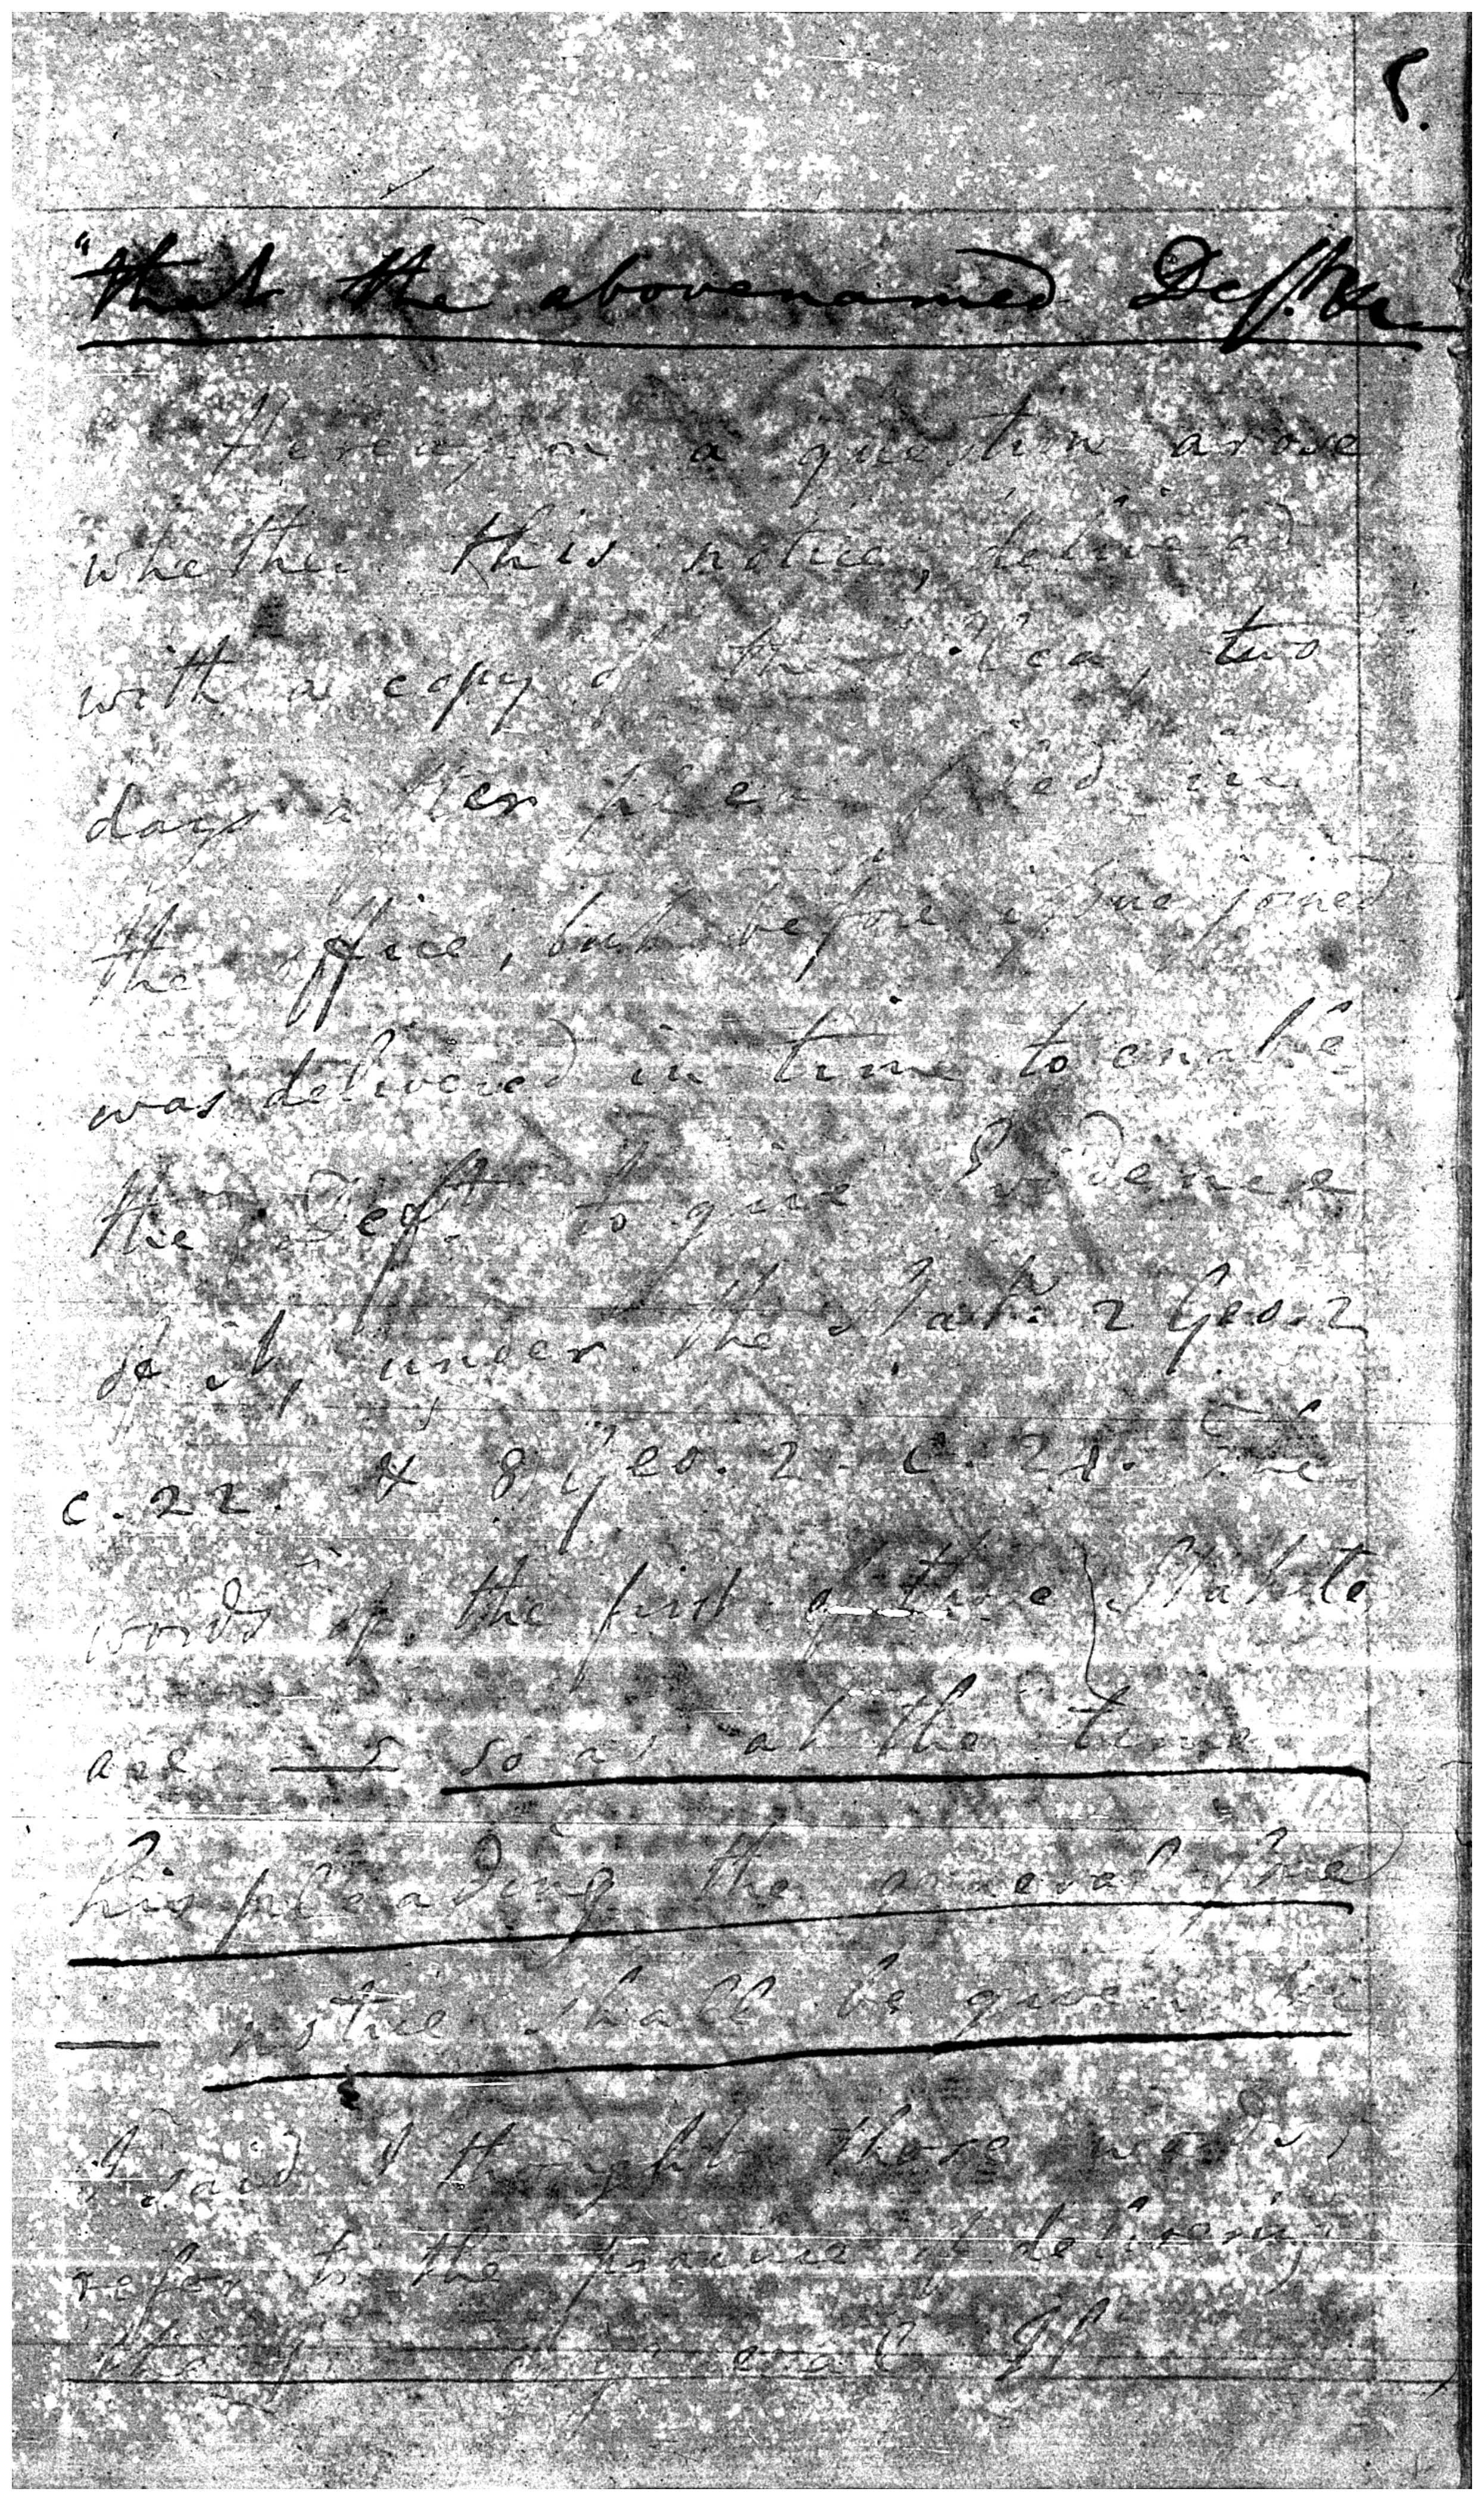 5.
"that the abovenamed Deft. &c
Hereupon a question arose
whether this notice, delivered
with a copy of the Plea, two
days after plea filed in
the office, but before issue joined
was delivered in time to enable
the Deft. to give Evidence
of it, under the Stat: 2 Geo. 2
c. 22. & 8 Geo. 2. c. 24. The
words of the first of these Statute
are — so as at the time
his pleading the general Issue
— notice shall be given &c
I said I thought these words,
refer to the practice of delivering
the general If